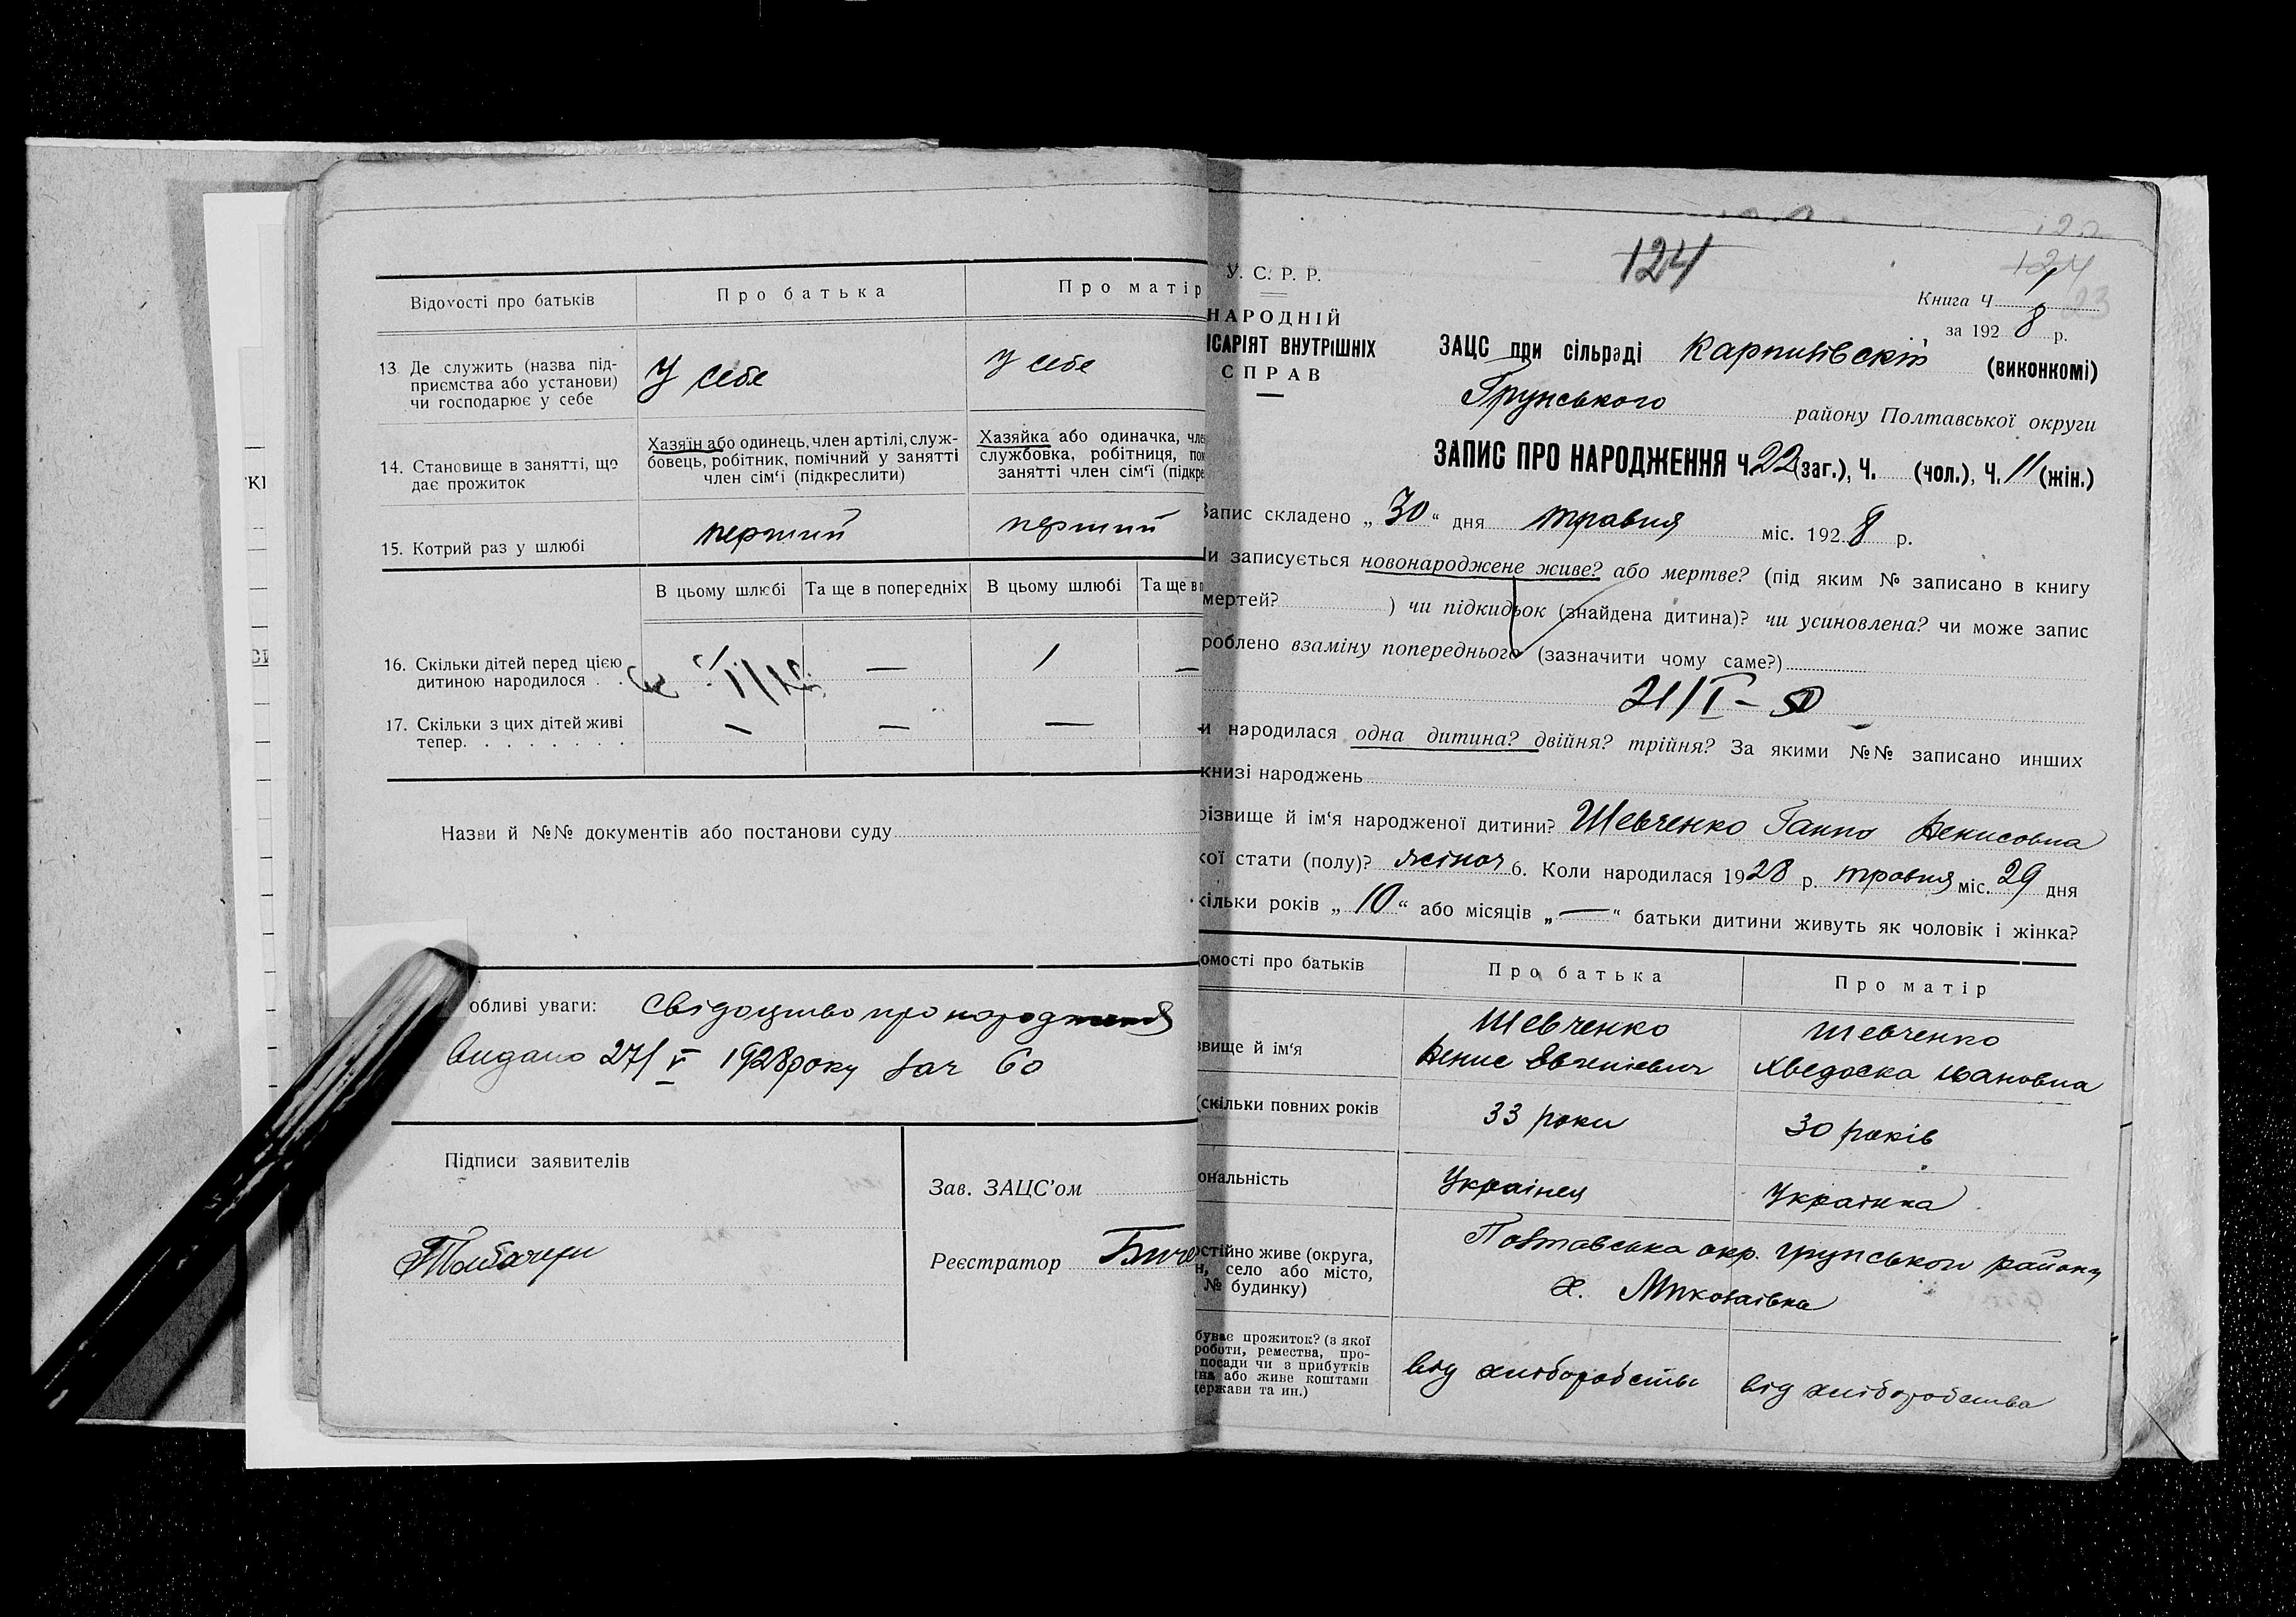 Відомості про батьків
Про батька
Про матір
13. Де служить (назва під-
приємства або установи)
чи господарює у себе
У себе
у себе
14. Становище в занятті, що
дає прожиток
Хазяїн або одинець, член артілі, служ-
бовець, робітник, помічний у занятті
член сім'ї (підкреслити)
Хазяйка або одиначка, чле
службовка, робітниця, по
занятті член сім'ї (підкре
15. Котрий раз у шлюбі
перший
перший
В цьому шлюбі
Та ще в попередніх
В цьому шлюбі
Та ще в п
16. Скільки дітей перед цією
дитиною народилося . .
—
1
—
17. Скільки з цих дітей живі
тепер. . . . . . . .
—
—
—
Назви й №№ документів або постанови суду
обливі уваги: Свідоцтво про народження
Видано 27/V 1928 року за ч 60
Підписи заявителів
Зав. ЗАЦС'ом
Реєстратор
124
124
23
У. С. Р. Р.
НАРОДНІЙ
ІСАРІЯТ ВНУТРІШНІХ
СПРАВ
Книга Ч 1
за 1928 р.
ЗАЦС при сільраді Карпилівскій (виконкомі)
Грунського району Полтавської округи
ЗАПИС ПРО НАРОДЖЕННЯ Ч. 22 (заг.), Ч. (чол.), Ч. 11 (жін.)
Запис складено „30“ дня травня міс. 1928 р.
и записується новонароджене живе? або мертве? (під яким № записано в книгу
мертей? ) чи підкидьок (знайдена дитина)? чи усиновлена? чи може запис
роблено взаміну попереднього (зазначити чому саме?)
21/I – 50
и народилася одна дитина? двійня? трійня? За якими №№ записано инших
книзі народжень
різвище й ім'я народженої дитини? Шевченко Ганна Денисовна
кої стати (полу)? жіноч 6. Коли народилася 1928 р. травня міс. 29 дня
кільки років „10“ або місяців „—“ батьки дитини живуть як чоловік і жінка?
омості про батьків
Про батька
Про матір
звище й ім'я
Шевченко
Денис Євгенієвич
Шевченко
Хведоска Івановна
(скільки повних років
33 роки
30 років
ональність
Українец
Українка
остійно живе (округа,
н, село або місто,
№ будинку)
Полтавська окр. Грунського району
х. Миколаівка
буває прожиток? (з якої
роботи, ремества, про-
посади чи з прибутків
на або живе коштами
держави та ин.)
від хліборобства
від хліборобства